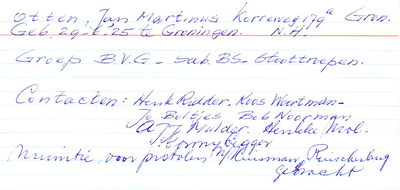 Otten, Jan Martinus Korreweg 179a Gron.
Geb. 29-1-25 te Groningen. N.H.
Groep B.V.G. - Sab. BS. - Stoottroepen.
Contacten: Henk Ridder. Koos Woortman-
Jo Boltjes Bob Noorman
Mulder. Henkie Mol.
Munitie voor pistolen Huisman, Rijscherbrug
gebracht